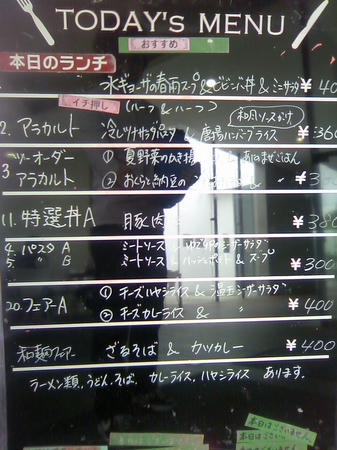 TODAY'S MENU
おすすめ
本日のランチ
水ギョーザの春雨スープ & ビビンバ丼 & ミニサラダ ¥40
イチ押し (ハーフ & ハーフ) 和風ソースかけ
2. アラカルト 冷し & ハンバーグライス ¥360
ツーオーダー ① 夏野菜のかき揚
3 アラカルト ② おくらと納豆の ¥3
11. 特選丼A 豚肉 ¥380
4. パスタ A ミートソース & シーザーサラダ
5. 〃 B ミートソース & & スープ ¥300
20. フェアーA ① チーズハヤシライス & 温玉シーザーサラダ
② チーズカレーライス & 〃 ¥400
和麺フェアー ざるそば & カツカレー ¥400
ラーメン類、うどん、そば、カレーライス、ハヤシライス あります。
本日はございません
本日はございません
本日はございません